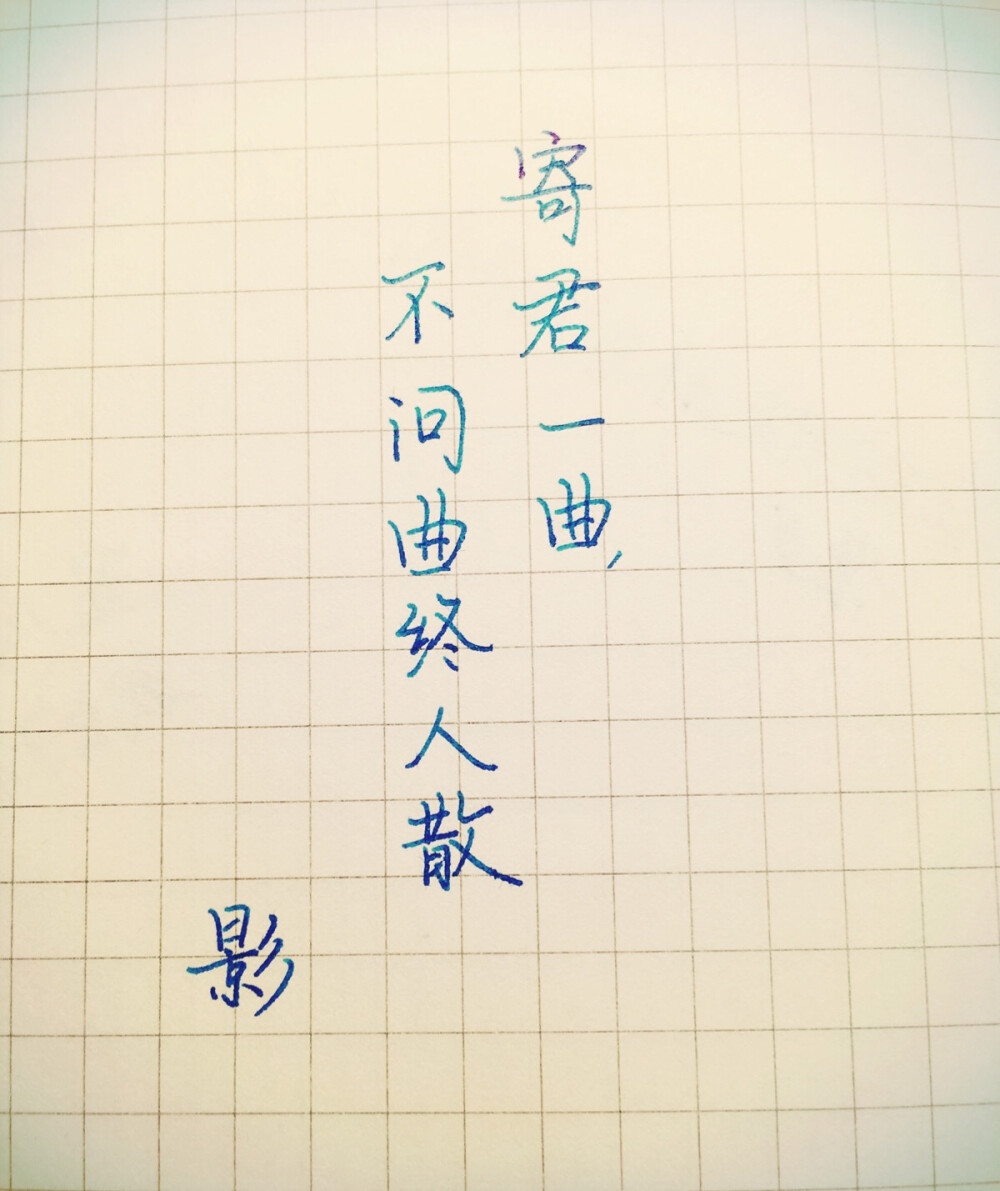 寄君一曲,
不问曲终人散
影